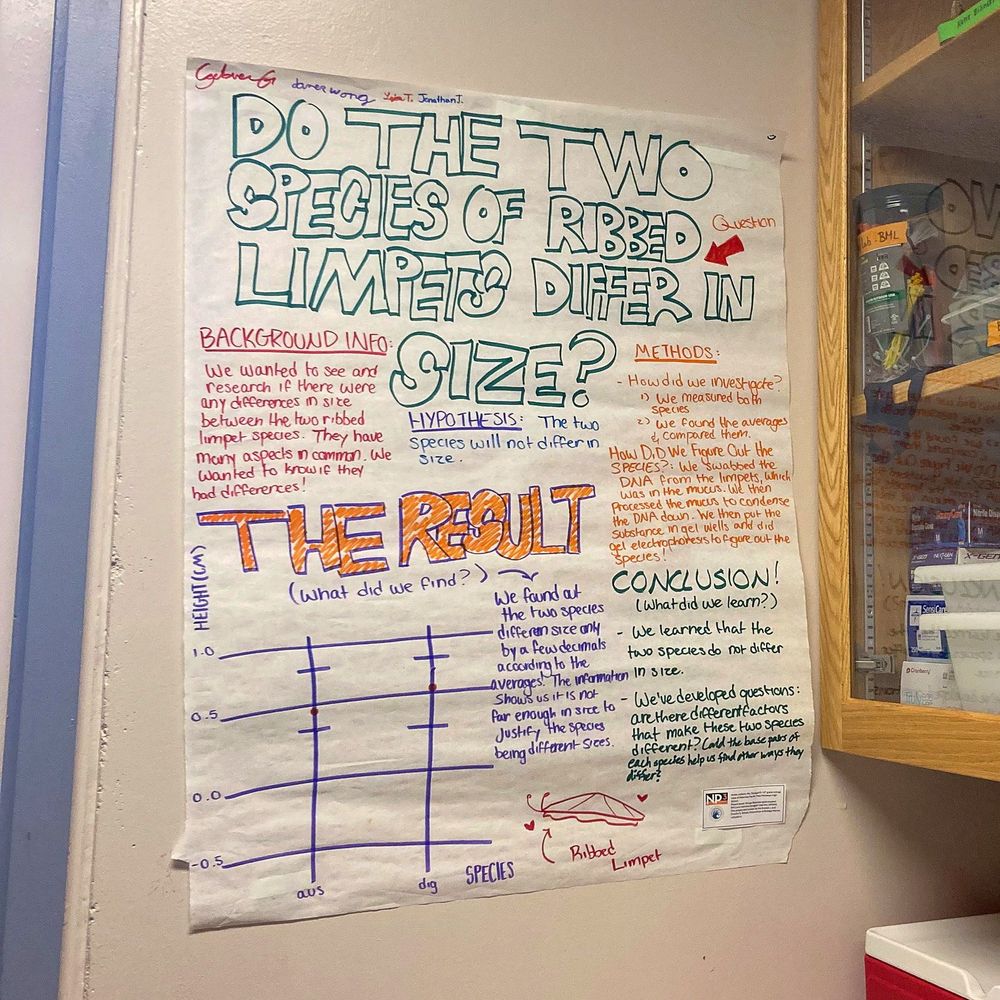 Jonathan J.
DO THE TWO
SPECIES OF RIBBED
LIMPETS DIFFER IN
SIZE?
Question
BACKGROUND INFO:
We wanted to see and
research if there were
any differences in size
between the two ribbed
limpet species. They have
many aspects in common. We
wanted to know if they
had differences!
HYPOTHESIS: The two
species will not differ in
size.
METHODS:
- How did we investigate?
1) We measured both
species
2) We found the averages
& compared them.
How Did We Figure Out the
SPECIES?: We swabbed the
DNA from the limpets, which
was in the mucus. We then
processed the mucus to condense
the DNA down. We then put the
substance in gel wells and did
gel electrophoresis to figure out the
species!
THE RESULT
(What did we find?)
We found out
the two species
different size only
by a few decimals
according to the
averages. The information
shows us it is not
far enough in size to
justify the species
being different sizes.
HEIGHT (CM)
1.0
0.5
0.0
-0.5
aus
dig
SPECIES
CONCLUSION!
(What did we learn?)
- We learned that the
two species do not differ
in size.
- We've developed questions:
are there different factors
that make these two species
different? Could the base pairs of
each species help us find other ways they
differ?
Ribbed
Limpet
Lab - BML
Nitrile
X-GEN